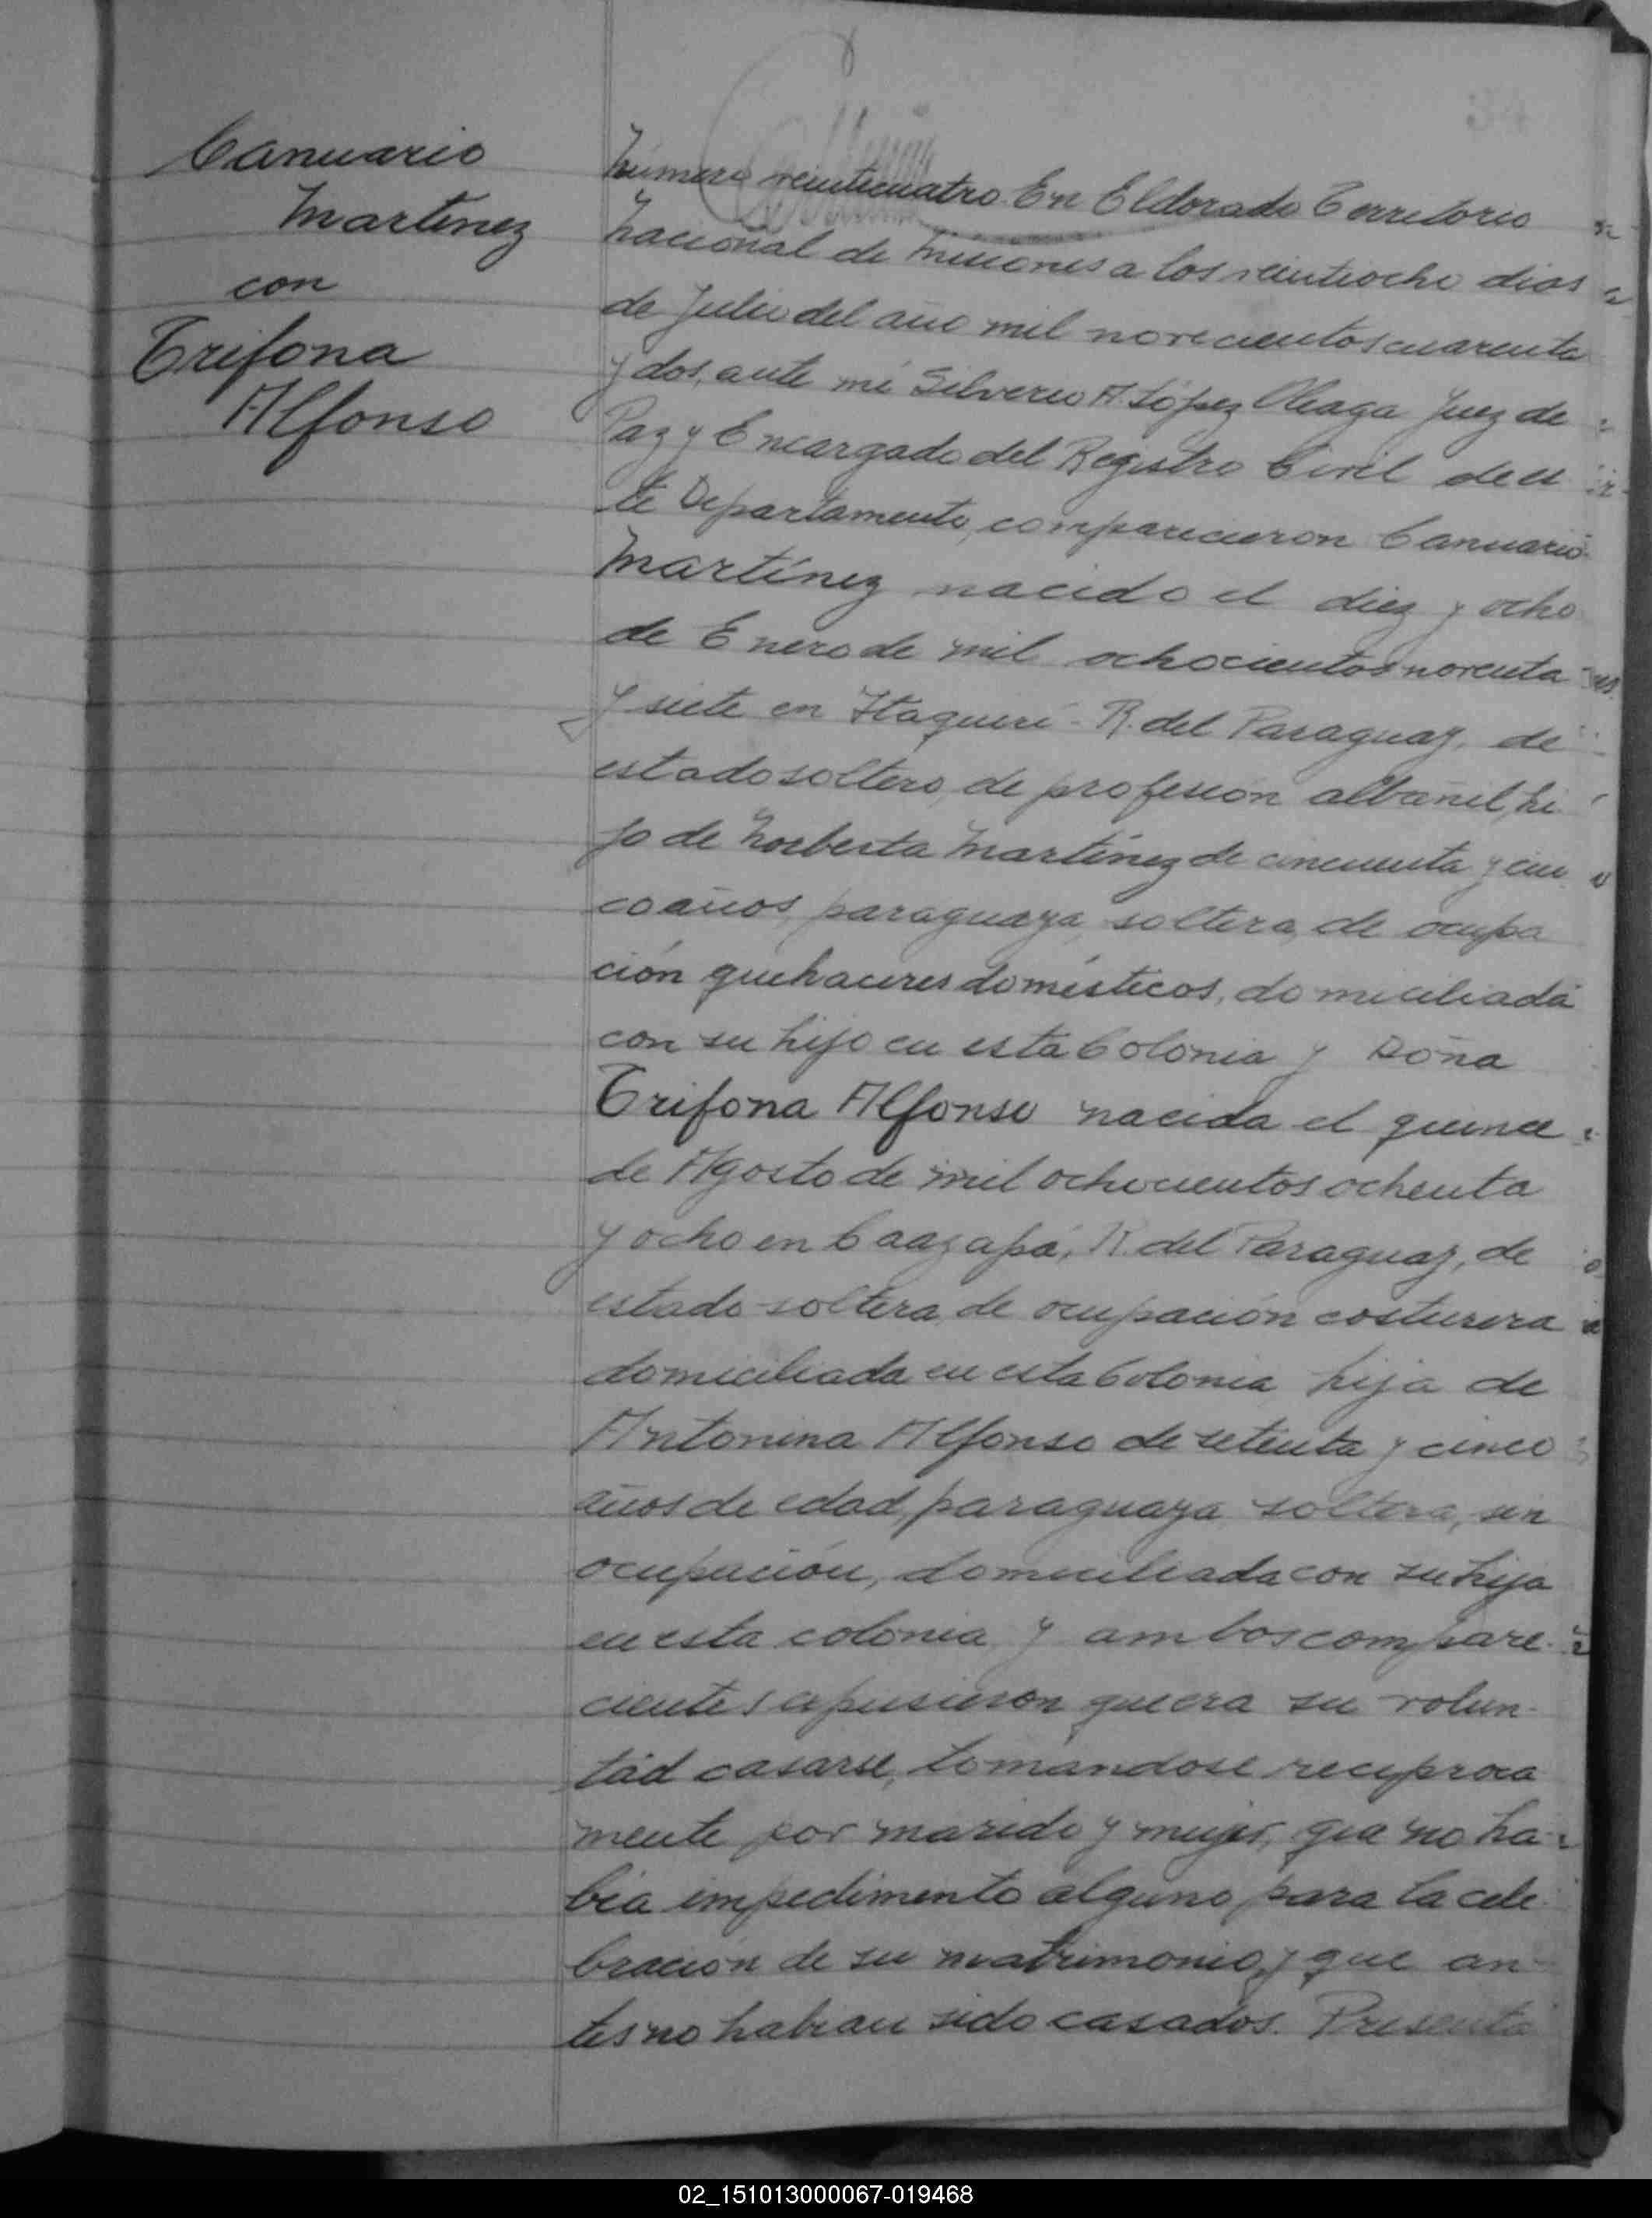 Canuario
Martínez
con
Trifona
Alfonso
Número veinticuatro. En Eldorado Territorio
Nacional de Misiones a los veintiocho dias
de Julio del año mil novecientos cuarenta
y dos, ante mi Silverio A. López Aleaga Juez de
Paz y Encargado del Registro Civil de es
te Departamento, comparecieron Canuario
Martínez nacido el diez y ocho
de Enero de mil ochocientos noventa
y siete en Itaquerí - R. del Paraguay, de
estado soltero, de profesión albañil, hi
jo de Norberta Martínez de cincuenta y cin
co años, paraguaya, soltera, de ocupa
ción quehaceres domésticos, domiciliada
con su hijo en esta Colonia y Doña
Trifona Alfonso nacida el quince
de Agosto de mil ochocientos ochenta
y ocho en Caazapá, R. del Paraguay, de
estado soltera, de ocupación costurera
domiciliada en esta Colonia, hija de
Antonina Alfonso de setenta y cinco
años de edad, paraguaya, soltera, sin
ocupación, domiciliada con su hija
en esta colonia y ambos compare-
cientes expusieron que era su volun-
tad casarse, tomandose reciproca
mente por marido y mujer, que no ha-
bia impedimento alguno para la cele
bración de su matrimonio y que an-
tes no habian sido casados. Presenta
02_151013000067-019468